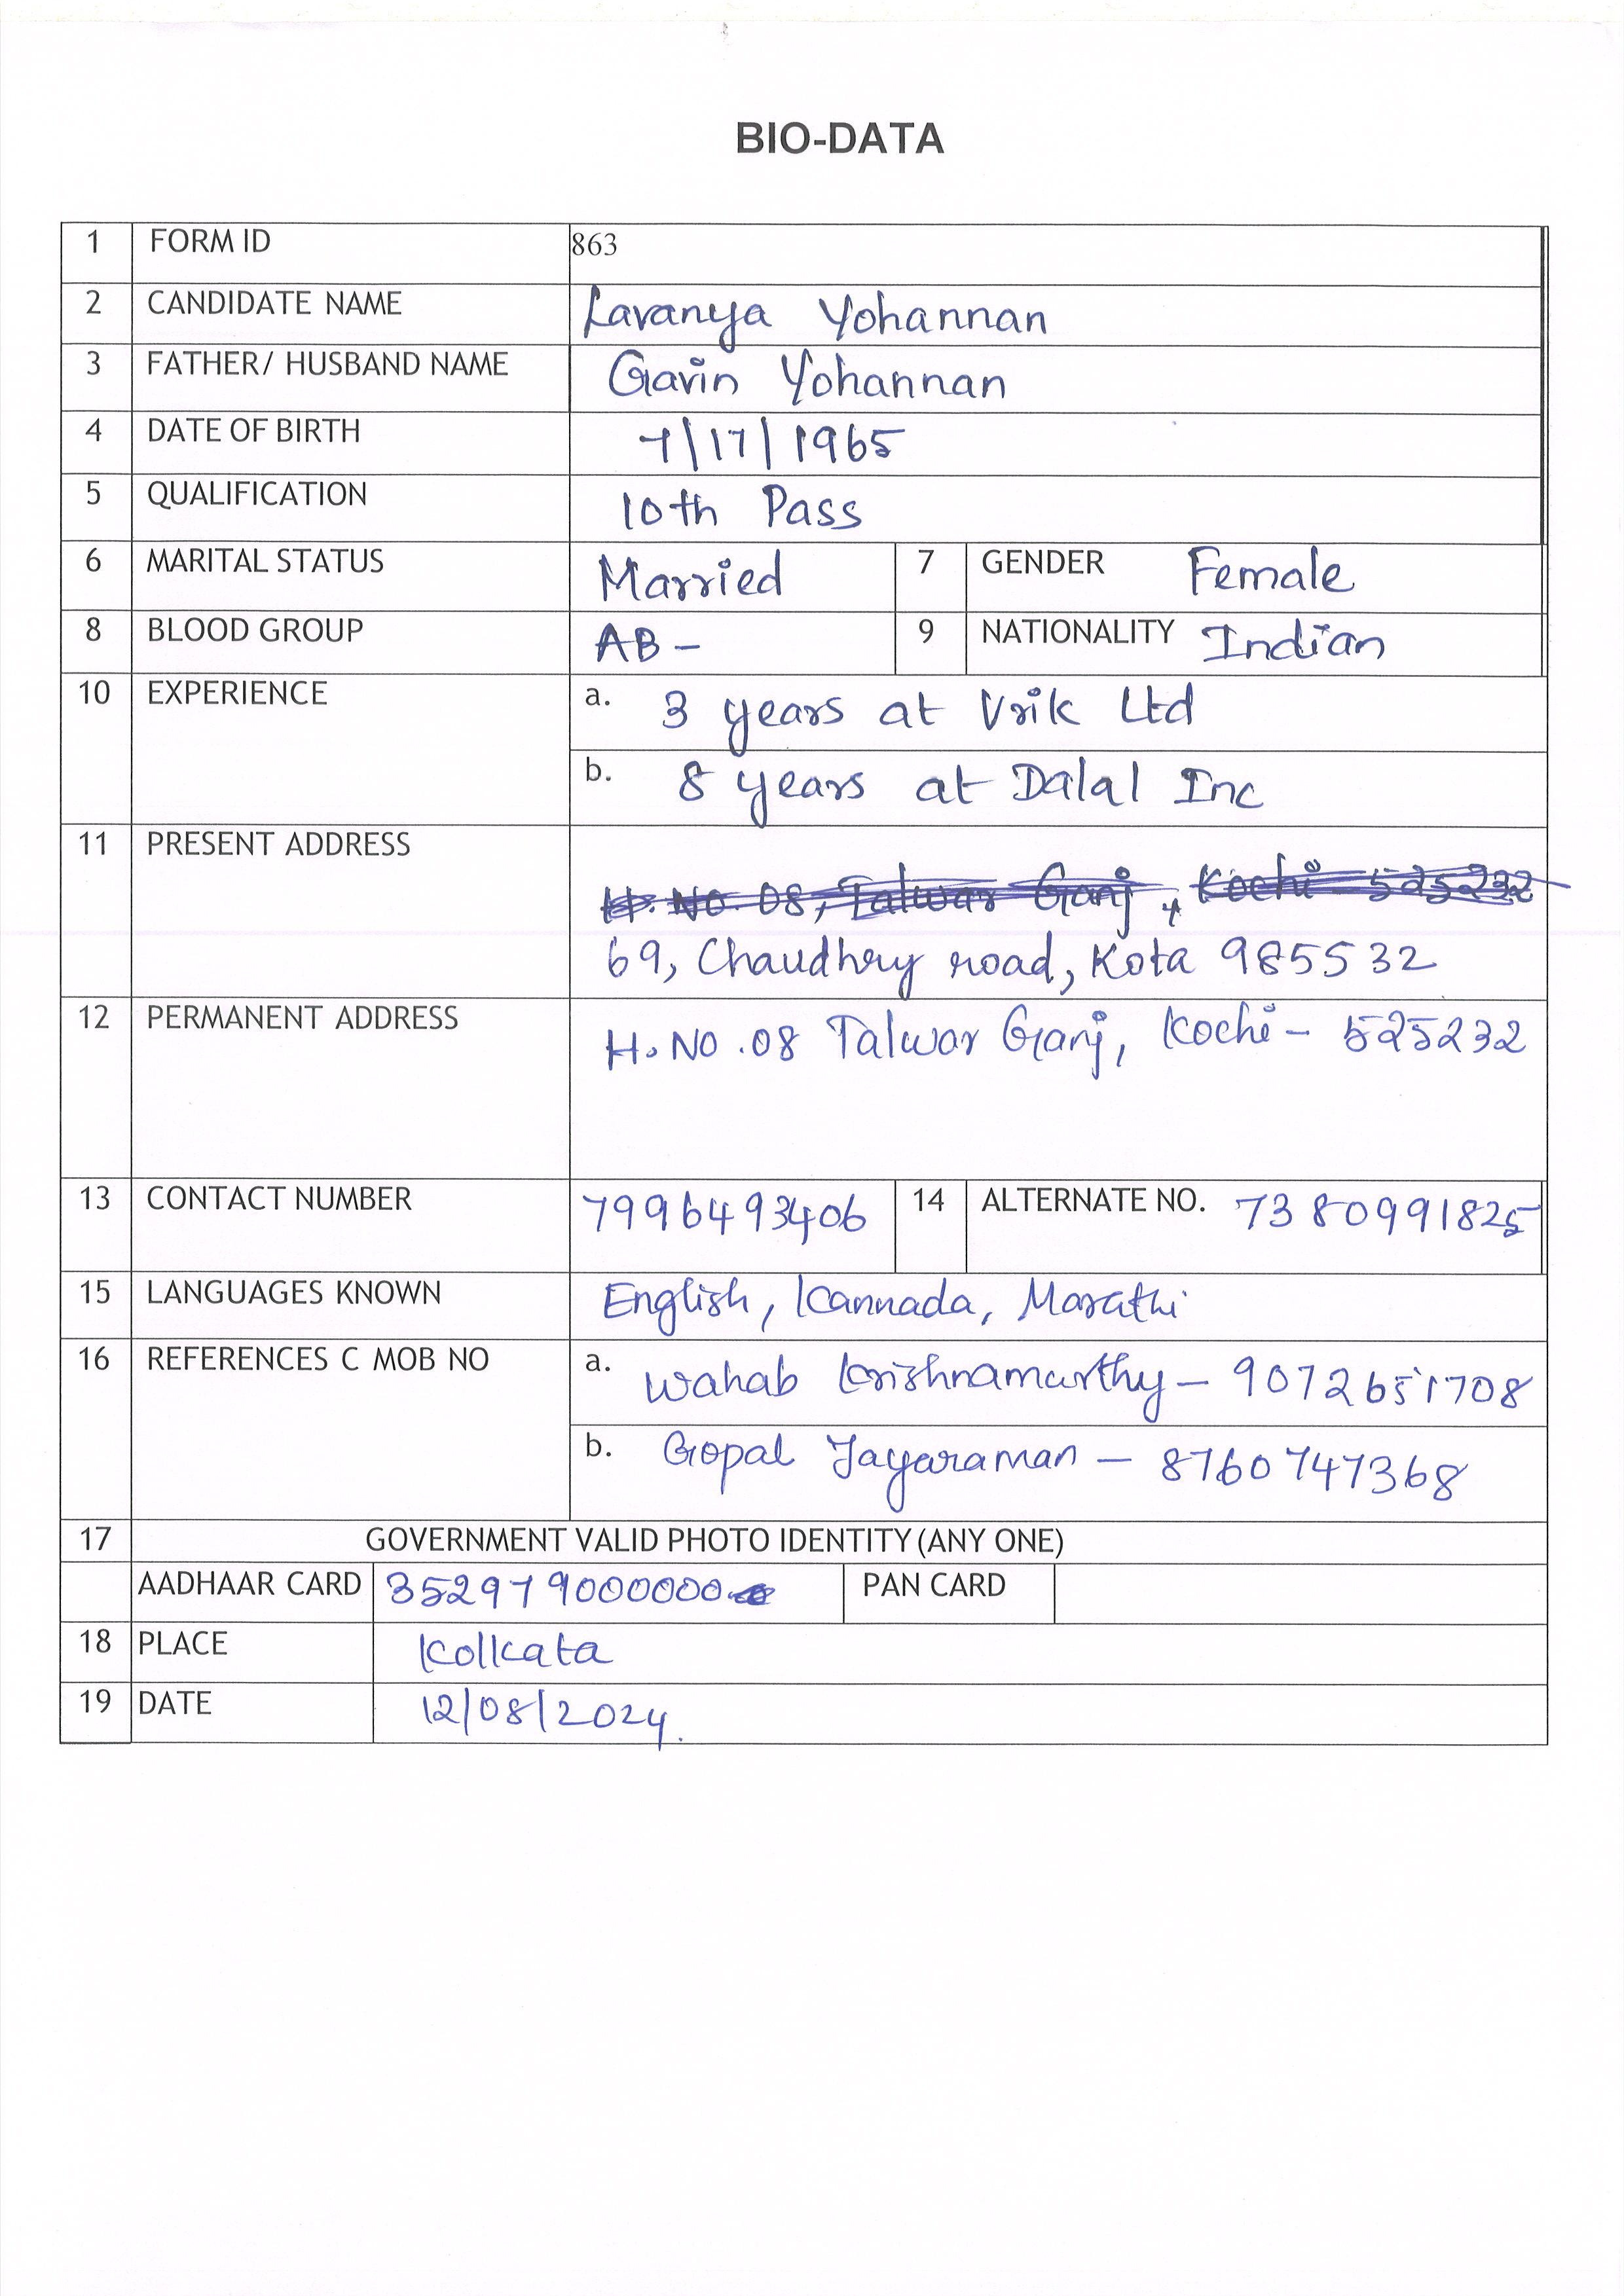 BIO-DATA
1 FORM ID 863
2 CANDIDATE NAME Lavanya Yohannan
3 FATHER/ HUSBAND NAME Gavin Yohannan
4 DATE OF BIRTH 7/17/1965
5 QUALIFICATION 10th Pass
6 MARITAL STATUS Married 7 GENDER Female
8 BLOOD GROUP AB - 9 NATIONALITY Indian
10 EXPERIENCE a. 3 years at Vrik Ltd
b. 8 years at Dalal Inc
11 PRESENT ADDRESS
H. No. 08, Talwar Ganj, Kochi - 525232
69, Chaudhry road, Kota 985532
12 PERMANENT ADDRESS H. No. 08 Talwar Ganj, Kochi - 525232
13 CONTACT NUMBER 7996493406 14 ALTERNATE NO. 7380991825
15 LANGUAGES KNOWN English, Kannada, Marathi
16 REFERENCES C MOB NO a. Wahab Krishnamurthy - 9072651708
b. Gopal Jayaraman - 8760747368
17 GOVERNMENT VALID PHOTO IDENTITY (ANY ONE)
AADHAAR CARD 352979000000 PAN CARD
18 PLACE Kolkata
19 DATE 12/08/2024.